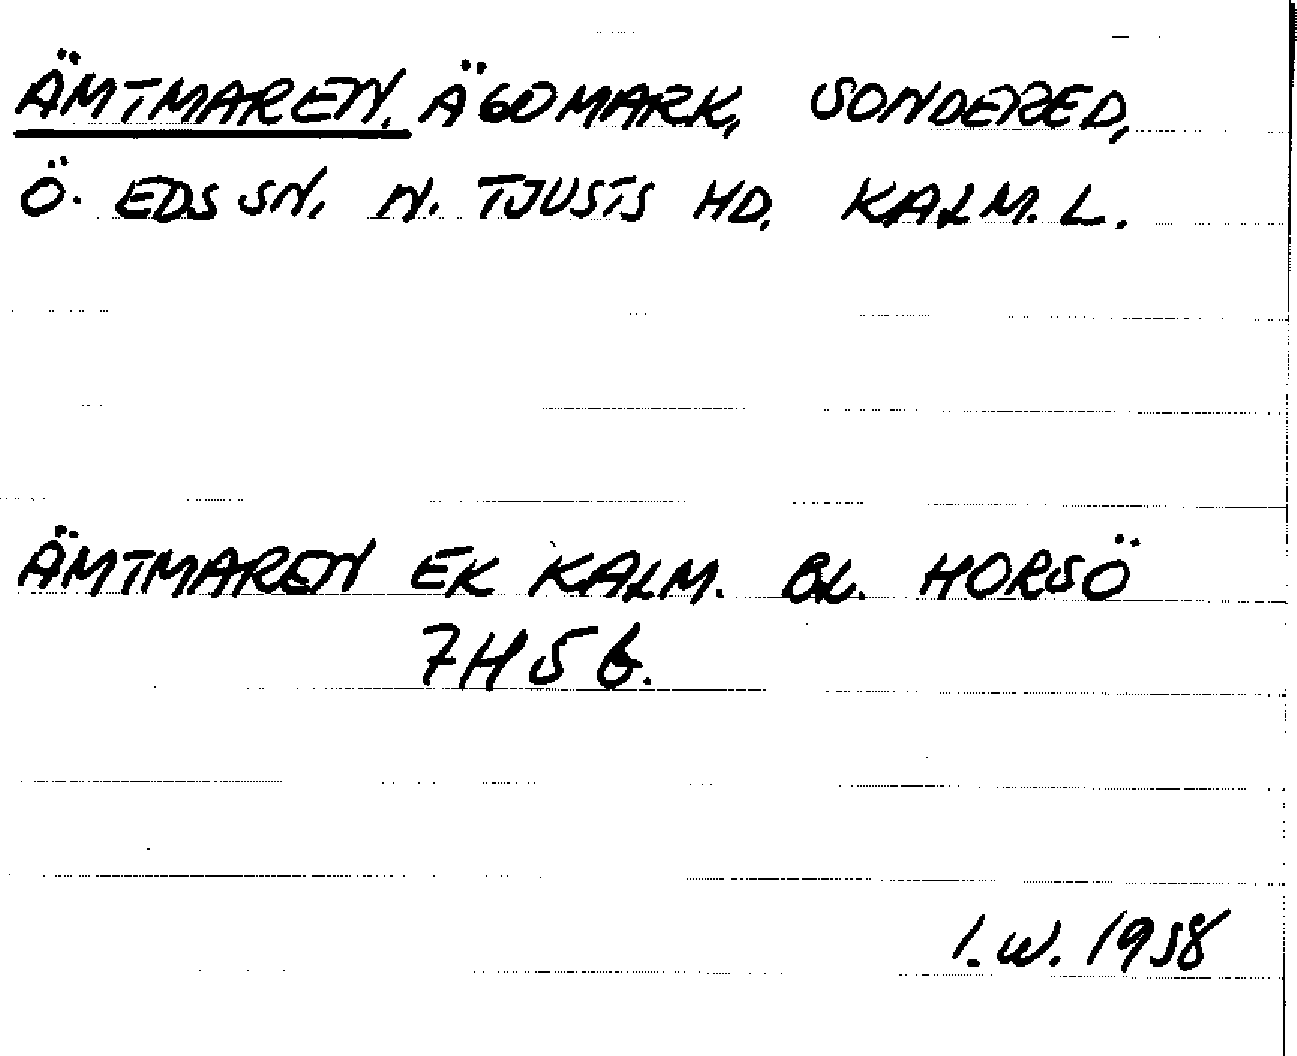 ÄMTMAREN, ÄGOMARK, SONDERED,
Ö. EDS SN, N. TJUSTS HD, KALM. L.
ÄMTMAREN EK KALM. BL. HORSÖ
7H 5 b.
I. W. 1958